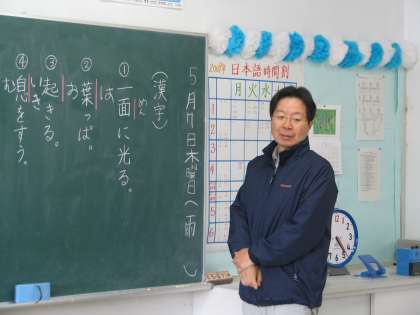 5月17日木曜日（雨）
（漢字）
①一面に光る。
めん
②葉っぱ。
は
③起きる。
お
④息をすう。
いき
む
日本語時間割
月 火 水 木
1
2
3
4
5
6